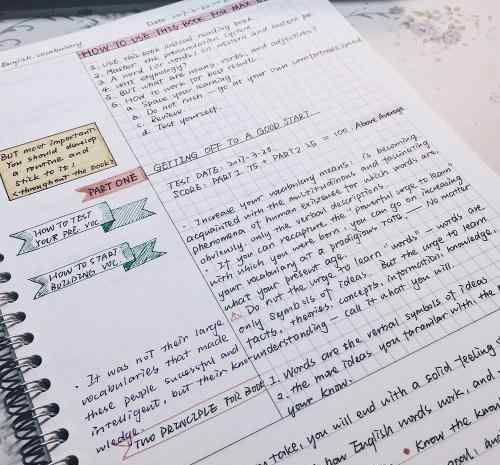 English vocabulary
Date 2017.3.20
HOW TO USE THIS BOOK FOR MAX BE
1. USE this book instead reading book
2. Master the pronunciation system
3. A word (or words) on mastery and
4. WHY etymology?
5. BUT what are nouns, verbs, and adjectives?
6. HOW to work for best results...
a. Space your learning
b. Do not rush — go at your own comfortable speed
c. Review
d. Test yourself.
BUT most important:
You should develop
a routine and
stick to it!
<throughout the book>
GETTING OFF TO A GOOD START
PART ONE
TEST DATE: 2017-3-20
SCORE: PART 2 75 + PART 2 25 = 100, Above Average
HOW TO TEST
YOUR PRE. VOC
HOW TO START
BUILDING VOC
• Increase your vocabulary means: is becoming
acquainted with the multitudinous and
phenomena of human existence for which words are,
obviously, only the verbal descriptions.
• If you can recapture the "powerful urge to learn"
with which you were born, you can go on increasing
your vocabulary at a prodigious rate — No matter
what your present age.
⚠ Do not the urge to learn "words" — words are
only symbols of ideas. But the urge to learn
facts, theories, concepts, information, knowledge,
understanding — call it what you will.
• It was not their large
vocabularies that made
these people sucessful and
intelligent, but their know-
wledge.
TWO PRINCIPLE FOR BOOK
1. Words are the verbal symbols of ideas
2. the more ideas you familar with the
your know.
take, you will end with a solid feeling
how English words work, and
• Know the